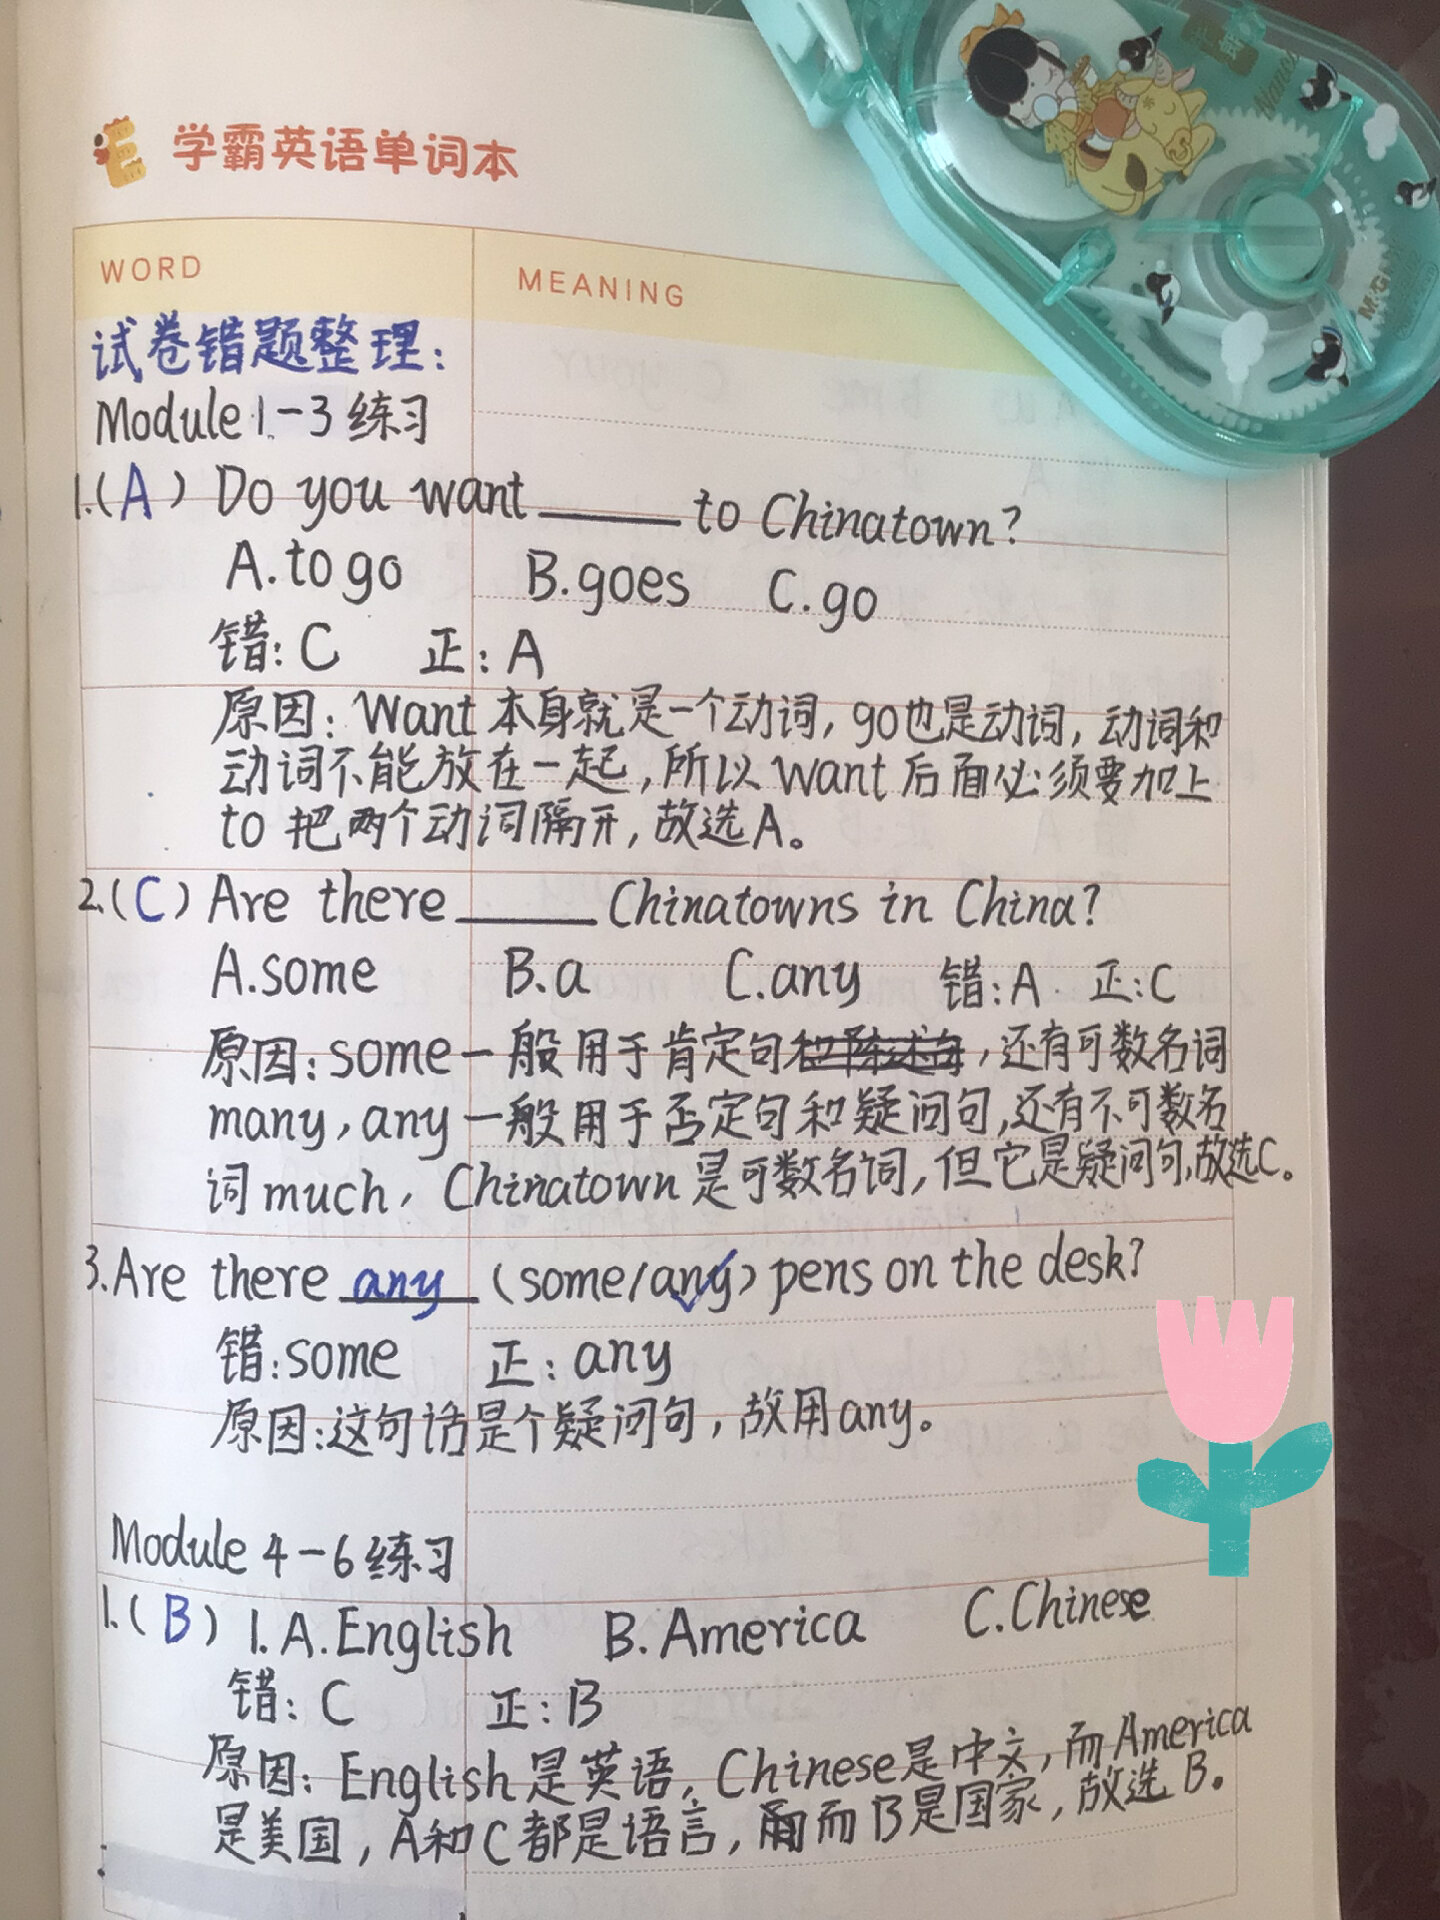 学霸英语单词本
WORD MEANING
试卷错题整理:
Module 1-3 练习
1.(A) Do you want ____ to Chinatown?
A.to go B.goes C.go
错: C 正: A
原因: Want 本身就是一个动词, go也是动词, 动词和
动词不能放在一起,所以 want 后面必须要加上
to 把两个动词隔开,故选A。
2.(C) Are there ____ Chinatowns in China?
A.some B.a C.any 错:A 正:C
原因: some 一般用于肯定句和陈述句,还有可数名词
many, any 一般用于否定句和疑问句,还有不可数名
词 much, Chinatown 是可数名词,但它是疑问句,故选C。
3.Are there any (some/any) pens on the desk?
错:some 正: any
原因:这句话是个疑问句,故用any。
Module 4-6 练习
1.(B) 1.A.English B.America C.Chinese
错: C 正:B
原因: English是英语, Chinese是中文,而America
是美国, A和C都是语言, 而B是国家,故选 B。
M&G